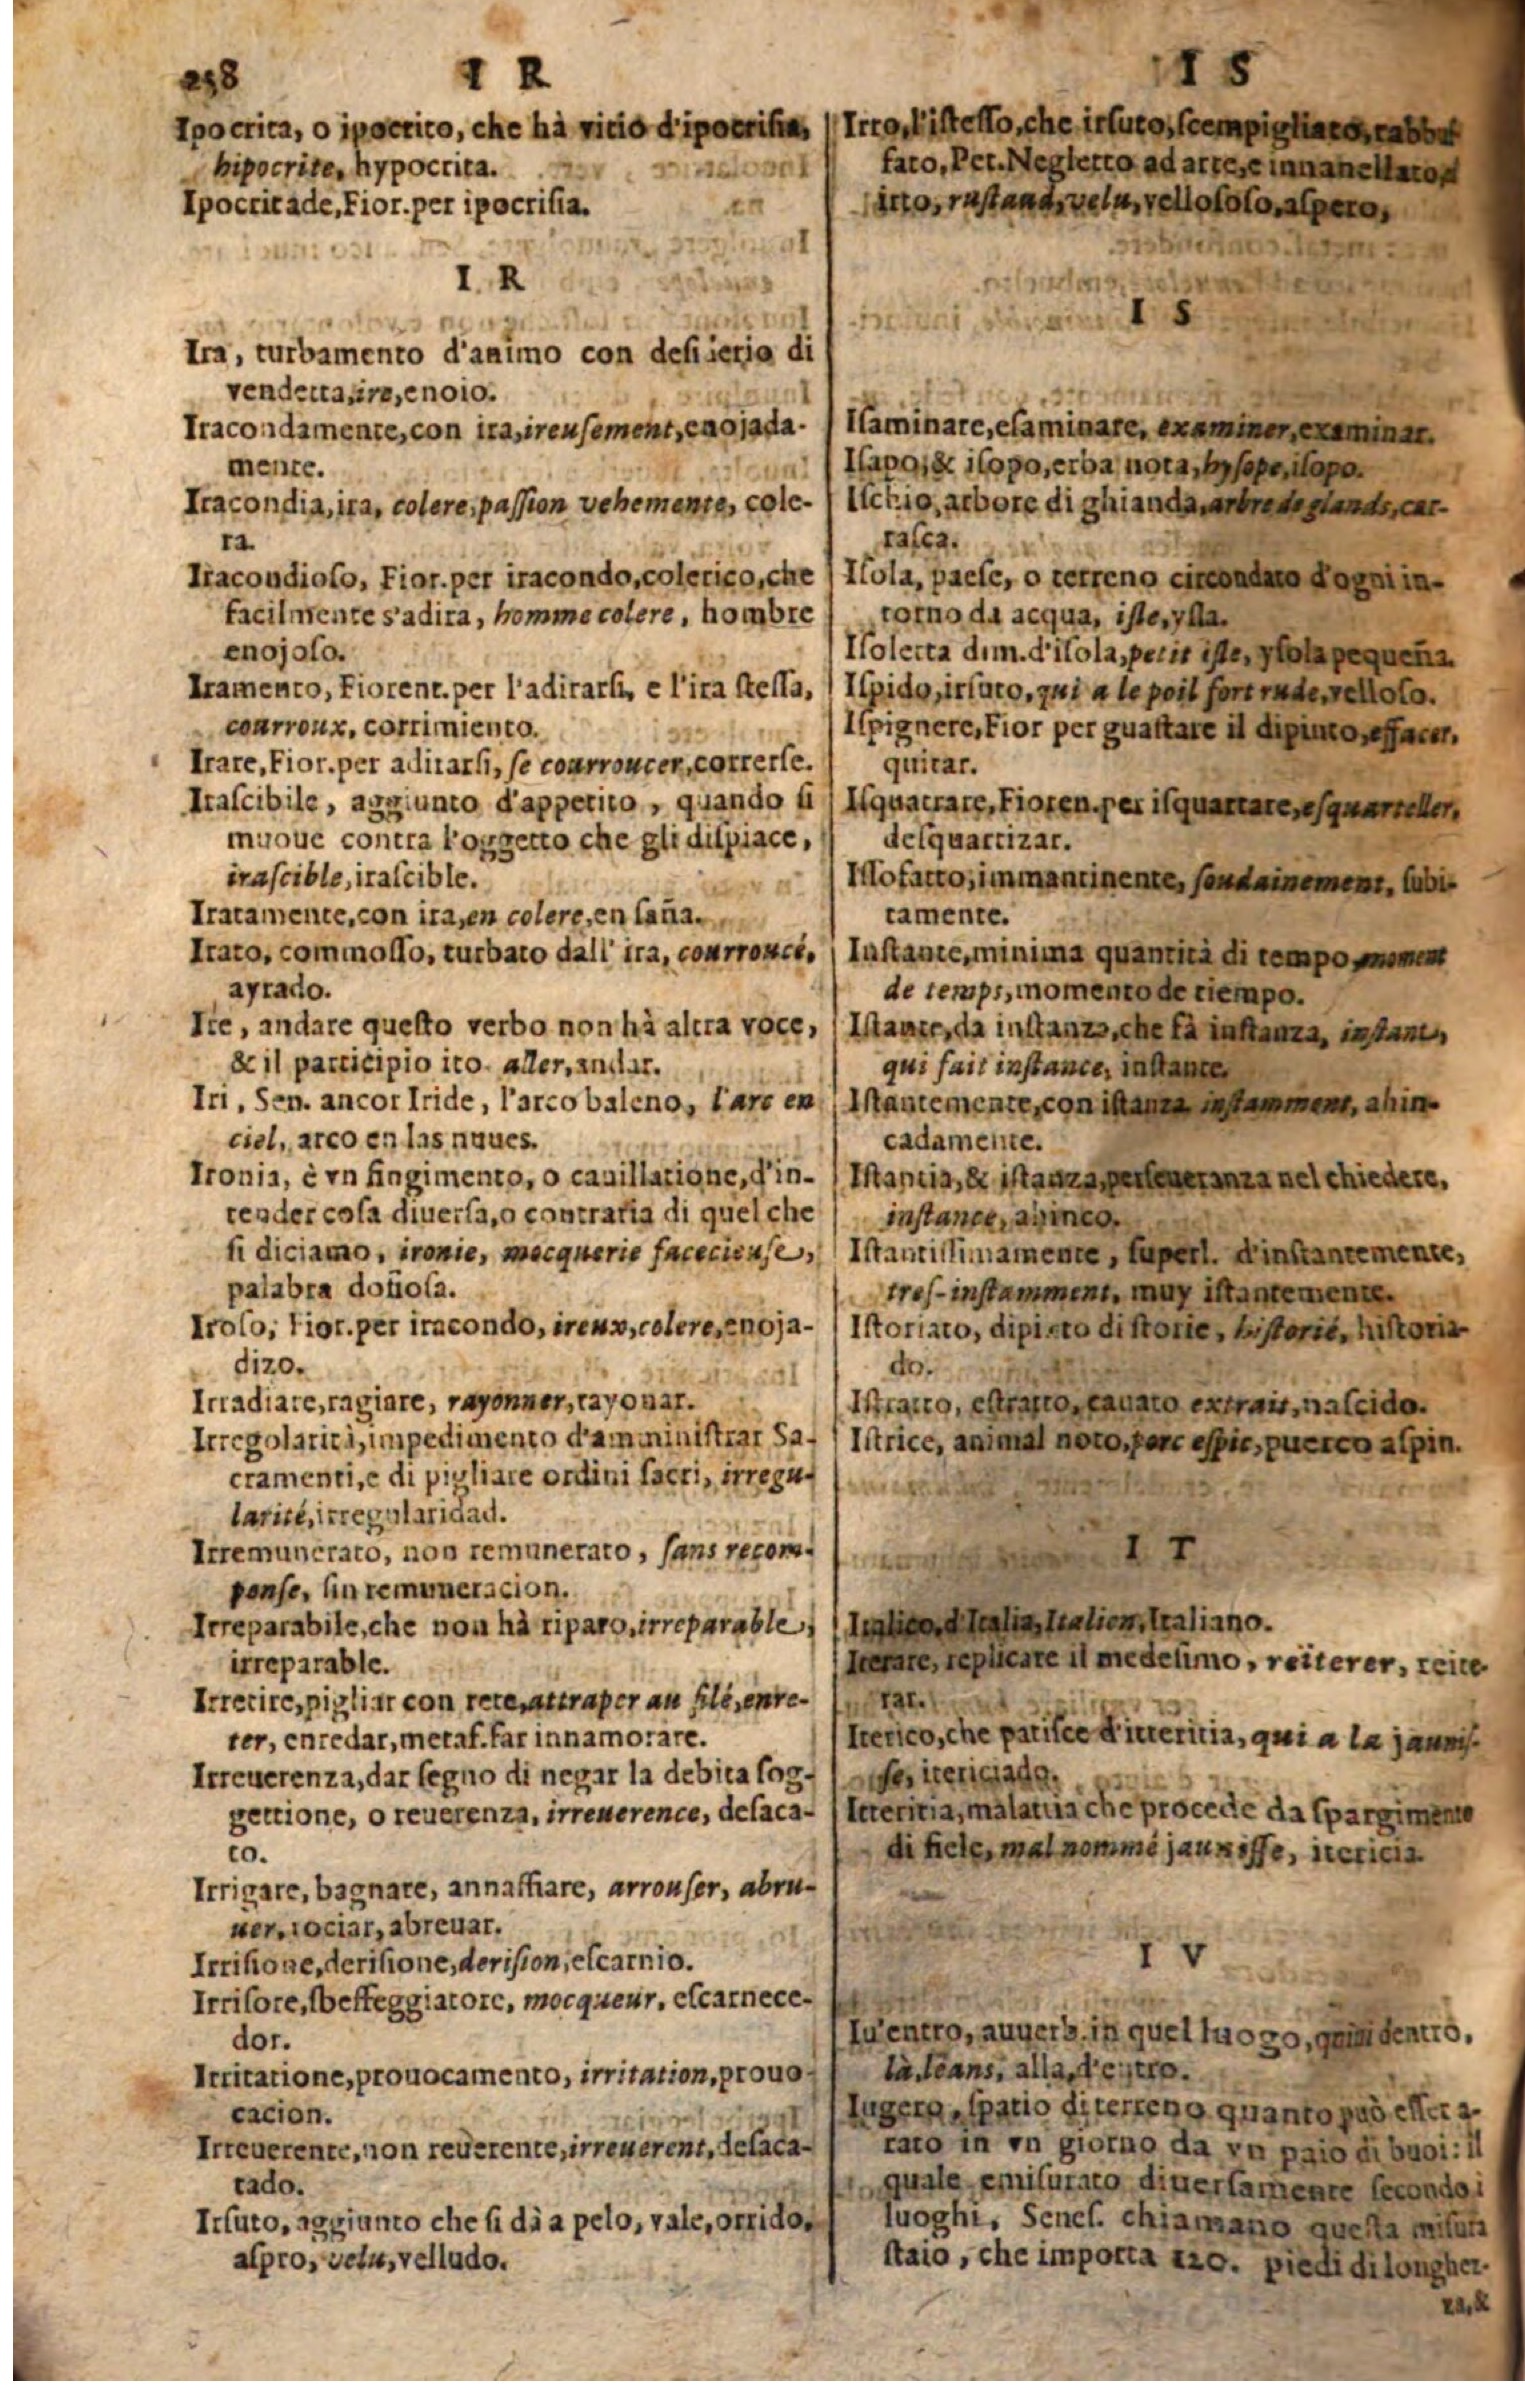 258
I R
Ipocrita, o ipocrito, che hà vitio d'ipocrisia,
hipocrite, hypocrita.
Ipocritade, Fior. per ipocrisia.
I R
Ira, turbamento d'animo con desiderio di
vendetta, ire, enoio.
Iracondamente, con ira, ireuſement, enojada-
mente.
Iracondia, ira, colere, paſſion vehemente, cole-
ra.
Iracondioſo, Fior. per iracondo, colerico, che
facilmente s'adira, homme colere, hombre
enojoſo.
Iramento, Fiorent. per l'adirarſi, e l'ira ſteſſa,
courroux, corrimiento.
Irare, Fior. per adirarſi, ſe courroucer, correrſe.
Iraſcibile, aggiunto d'appetito, quando ſi
muoue contra l'oggetto che gli diſpiace,
iraſcible, iraſcible.
Iratamente, con ira, en colere, en ſaña.
Irato, commoſſo, turbato dall' ira, courroucé,
ayrado.
Ire, andare queſto verbo non hà altra voce,
& il participio ito. aller, andar.
Iri, Sen. ancor Iride, l'arco baleno, l'arc en
ciel, arco en las nuues.
Ironia, è vn fingimento, o cauillatione, d'in-
tender coſa diuerſa, o contraria di quel che
ſi diciamo, ironie, mocquerie facecieuſe,
palabra doñoſa.
Iroſo, Fior. per iracondo, ireux, colere, enoja-
dizo.
Irradiare, ragiare, rayonner, rayonar.
Irregolarità, impedimento d'amminiſtrar Sa-
cramenti, e di pigliare ordini ſacri, irregu-
larité, irregularidad.
Irremunerato, non remunerato, ſans recom-
penſe, ſin remuneracion.
Irreparabile, che non hà riparo, irreparable,
irreparable.
Irretire, pigliar con rete, attraper au filé, enre-
ter, enredar, metaf. far innamorare.
Irreuerenza, dar ſegno di negar la debita ſog-
gettione, o reuerenza, irreuerence, deſaca-
to.
Irrigare, bagnare, annaffiare, arrouſer, abru-
uer, rociar, abreuar.
Irriſione, deriſione, deriſion, eſcarnio.
Irriſore, ſbeffeggiatore, mocqueur, eſcarnece-
dor.
Irritatione, prouocamento, irritation, prouo-
cacion.
Irreuerente, non reuerente, irreuerent, deſaca-
tado.
Irſuto, aggiunto che ſi dà a pelo, vale, orrido,
aſpro, velu, velludo.
I S
Irto, l'iſteſſo, che irſuto, ſcempigliato, rabbuf
fato, Pet. Negletto ad arte, e innanellato,
irto, ruſtand, velu, velloſoſo, aſpero,
I S
Iſaminare, eſaminare, examiner, examinar.
Iſapo, & iſopo, erba nota, hyſope, iſopo.
Iſchio, arbore di ghianda, arbre de glands, car-
raſca.
Iſola, paeſe, o terreno circondato d'ogni in-
torno da acqua, iſle, yſla.
Iſoletta dim. d'iſola, petit iſle, yſola pequeña.
Iſpido, irſuto, qui a le poil fort rude, velloſo.
Iſpignere, Fior per guaſtare il dipinto, effacer,
quitar.
Iſquatrare, Fioren. per iſquartare, eſquarteller,
deſquartizar.
Iſſofatto, immantinente, ſoudainement, ſubi-
tamente.
Inſtante, minima quantità di tempo, moment
de temps, momento de tiempo.
Iſtante, da inſtanza, che fà inſtanza, inſtant,
qui fait inſtance, inſtante.
Iſtantemente, con iſtanza inſtamment, ahin-
cadamente.
Iſtantia, & iſtanza, perſeueranza nel chiedere,
inſtance, ahinco.
Iſtantiſſimamente, ſuperl. d'inſtantemente,
treſ-inſtamment, muy iſtantemente.
Iſtoriato, dipinto di ſtorie, hiſtorié, hiſtoria-
do.
Iſtratto, eſtratto, cauato extrait, naſcido.
Iſtrice, animal noto, porc eſpic, puerco aſpin.
I T
Italico, d'Italia, Italien, Italiano.
Iterare, replicare il medeſimo, reïterer, reite-
rar.
Iterico, che patiſce d'itteritia, qui a la jauniſ-
ſe, itericiado.
Itteritia, malattia che procede da ſpargimento
di fiele, mal nommé jauniſſe, itericia.
I V
Iu'entro, auuerb. in quel luogo, quiui dentro,
là, leans, alla, d'entro.
Iugero, ſpatio di terreno quanto può eſſer a-
rato in vn giorno da vn paio di buoi: il
quale emiſurato diuerſamente ſecondo i
luoghi, Seneſ. chiamano queſta miſura
ſtaio, che importa 120. piedi di longhez-
za, &